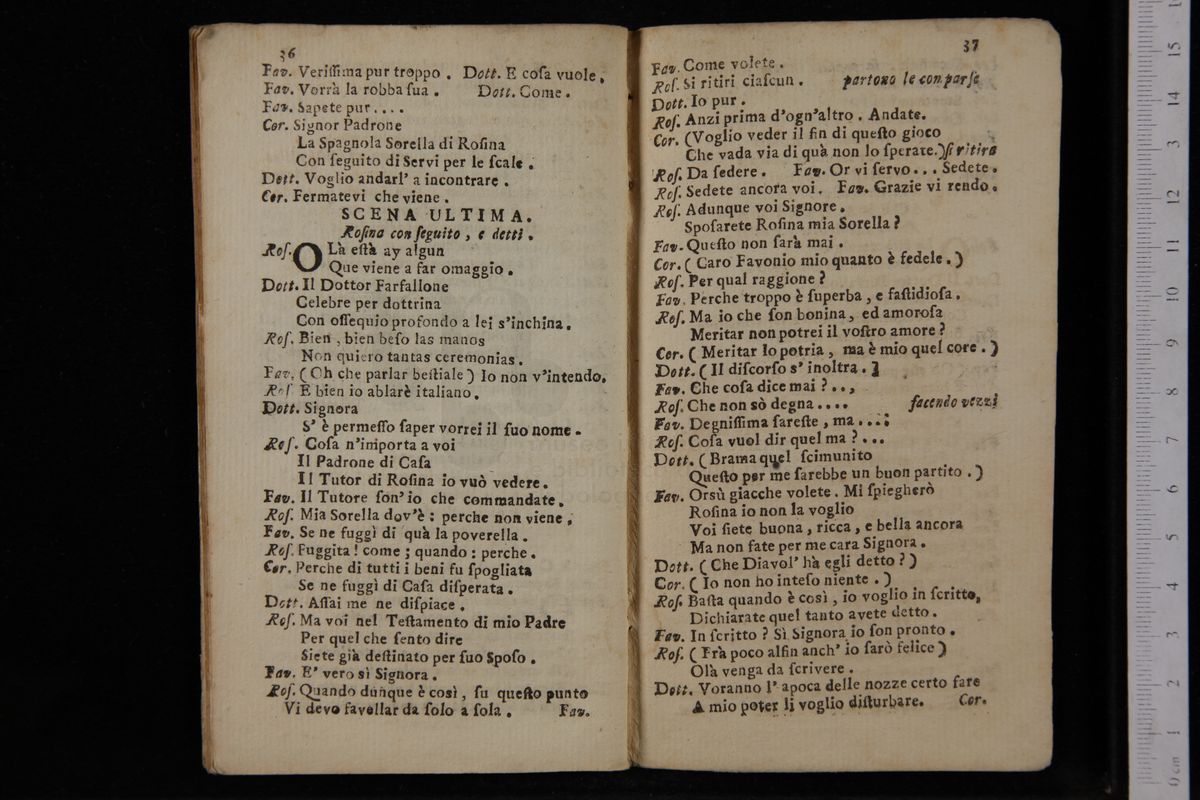 36
Fav. Veriſſima pur troppo . Dott. E coſa vuole,
Fav. Vorrà la robba ſua . Dott. Come .
Fav. Sapete pur . . . .
Cor. Signor Padrone
La Spagnola Sorella di Roſina
Con ſeguito di Servi per le ſcale .
Dott. Voglio andarl' a incontrare .
Cor. Fermatevi che viene .
SCENA ULTIMA.
Roſina con ſeguito , e detti .
Roſ. OLà eſtà ay algun
Que viene a far omaggio .
Dott. Il Dottor Farfallone
Celebre per dottrina
Con oſſequio profondo a lei s'inchina.
Roſ. Bien , bien beſo las manos
Non quiero tantas ceremonias .
Fav. ( Oh che parlar beſtiale ) Io non v'intendo.
Roſ E bien io ablarè italiano .
Dott. Signora
S' è permeſſo ſaper vorrei il ſuo nome .
Roſ. Coſa n'importa a voi
Il Padrone di Caſa
Il Tutor di Roſina io vuò vedere.
Fav. Il Tutore ſon' io che commandate.
Roſ. Mia Sorella dov'è : perche non viene ,
Fav. Se ne fuggì di quà la poverella .
Roſ. Fuggita ! come ; quando : perche .
Cor. Perche di tutti i beni fu ſpogliata
Se ne fuggì di Caſa diſperata .
Dott. Aſſai me ne diſpiace .
Roſ. Ma voi nel Teſtamento di mio Padre
Per quel che ſento dire
Siete già deſtinato per ſuo Spoſo .
Fav. E' vero sì Signora .
Roſ. Quando dunque è così , ſu queſto punto
Vi devo favellar da ſolo a ſola . Fav.
37
Fav. Come volete .
Roſ. Si ritiri ciaſcun . partono le comparſe
Dott. Io pur .
Roſ. Anzi prima d'ogn'altro . Andate.
Cor. (Voglio veder il fin di queſto gioco
Che vada via di quà non lo ſperate.)ſi ritira
Roſ. Da ſedere . Fav. Or vi ſervo . . . Sedete .
Roſ. Sedete ancora voi. Fav. Grazie vi rendo .
Roſ. Adunque voi Signore .
Spoſarete Roſina mia Sorella ?
Fav. Queſto non ſarà mai .
Cor. ( Caro Favonio mio quanto è fedele . )
Roſ. Per qual raggione ?
Fav. Perche troppo è ſuperba , e faſtidioſa .
Roſ. Ma io che ſon bonina , ed amoroſa
Meritar non potrei il voſtro amore ?
Cor. ( Meritar lo potria , ma è mio quel core . )
Dott. ( Il diſcorſo s' inoltra . ]
Fav. Che coſa dice mai ? . . ,
Roſ. Che non sò degna . . . . facendo vezzi
Fav. Degniſſima ſareſte , ma . . . .
Roſ. Coſa vuol dir quel ma ? . . .
Dott. ( Brama quel ſcimunito
Queſto per me ſarebbe un buon partito . )
Fav. Orsù giacche volete . Mi ſpiegherò
Roſina io non la voglio
Voi ſiete buona , ricca , e bella ancora
Ma non fate per me cara Signora .
Dott. ( Che Diavol' hà egli detto ? )
Cor. ( Io non ho inteſo niente . )
Roſ. Baſta quando è così , io voglio in ſcritto,
Dichiarate quel tanto avete detto .
Fav. In ſcritto ? Sì Signora io ſon pronto .
Roſ. ( Frà poco alfin anch' io ſarò felice )
Olà venga da ſcrivere .
Dott. Voranno l' apoca delle nozze certo fare
A mio poter li voglio diſturbare. Cor.
0 cm 1 2 3 4 5 6 7 8 9 10 11 12 13 14 15